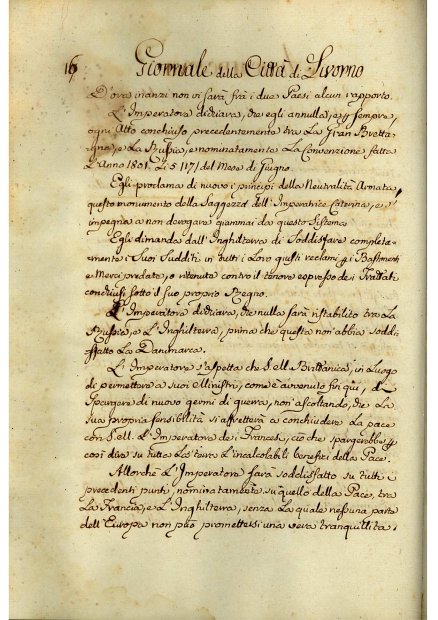 16
Giornale della Città di Livorno
D'ora inanzi non vi sarà frà i due Paesi alcun rapporto.
L'Imperatore dichiara, che egli annulla, e p sempre,
ogni Atto conchiuso precedentemente tra La Gran Bretta-
gna, e La Russia, e nominatamente La Convenzione fatta
L'Anno 1801. Li 5 (17) del Mese di Giugno.
Egli proclama di nuovo i principj della Neutralità Armata,
questo monumento della Saggezza dell'Imperatrice Caterina, e s'
impegna a non derogare giammai da questo Sistema.
Egli dimanda dall'Inghilterra di Soddisfare completa-
mente i Suoi Sudditi in tutti i Loro giusti reclami p i Bastimenti
e Merci predate, o ritenute contro il tenore espresso dei Trattati
conchiusi sotto il suo proprio Regno.
L'Imperatore dichiara, che nulla sarà ristabilito tra La
Russia, e L'Inghilterra, prima che questa non abbia soddi-
sfatto La Danimarca.
L'Imperatore s'aspetta che S. M. Britanica, in Luogo
di permettere a suoi Ministri, come è avvenuto fin qui, di
Spargere di nuovo germi di guerra, non ascoltando, che La
sua propria sensibilità si affretterà a conchiudere La pace
con S. M. L'Imperatore dei Francesi, ciò che spargerebbe p
così dire su tutta La terra L'incalcolabili benefizi della Pace.
Allorchè L'Imperatore sarà soddisfatto su tutti i
precedenti punti, nominatamente su quello della Pace, tra
La Francia, e L'Inghilterra, senza La quale nessuna parte
dell'Europa non può promettersi una vera tranquillità,